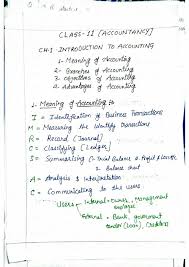 CLASS-11 (ACCOUNTANCY)
CH-1 INTRODUCTION TO ACCOUNTING
1- Meaning of Accounting
2- Branches of Accounting
3- Objectives of Accounting
4- Advantages of Accounting
1- Meaning of Accounting is
I = Identification of Business Transactions
M = Measuring the Identify Transactions
R = Record (Journal)
C = Classifying (Ledger)
S = Summarising (- Trial Balance - Profit & Loss
- Balance sheet
A = Analysis & Interpretation
C = Communicating to the users
Users Internal = owner, Management
employee
External = Bank, government
lender (loan), Creditors